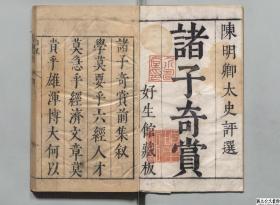 陳明卿太史評選
諸子奇賞
好生館藏板
諸子奇賞前集敘
學莫要乎六經人才
莫急乎經濟文章莫
貴乎雄渾博大何以